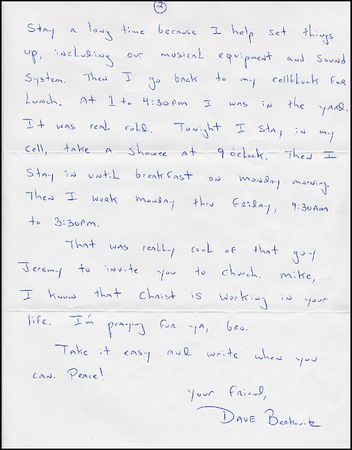 2
Stay a long time because I help set things
up, including our musical equipment and sound
system. Then I go back to my cellblock for
lunch. At 1 to 4:30pm I was in the yard.
It was real cold. Tonight I stay in my
cell, take a shower at 9 o'clock. Then I
stay in until breakfast on monday morning.
Then I work monday thru Friday, 9:30AM
to 3:30pm.
That was really cool of that guy
Jeremy to invite you to church. Mike,
I know that Christ is working in your
life. I'm praying for ya, bro.
Take it easy and write when you
can. Peace!
Your friend,
Dave Berkowitz